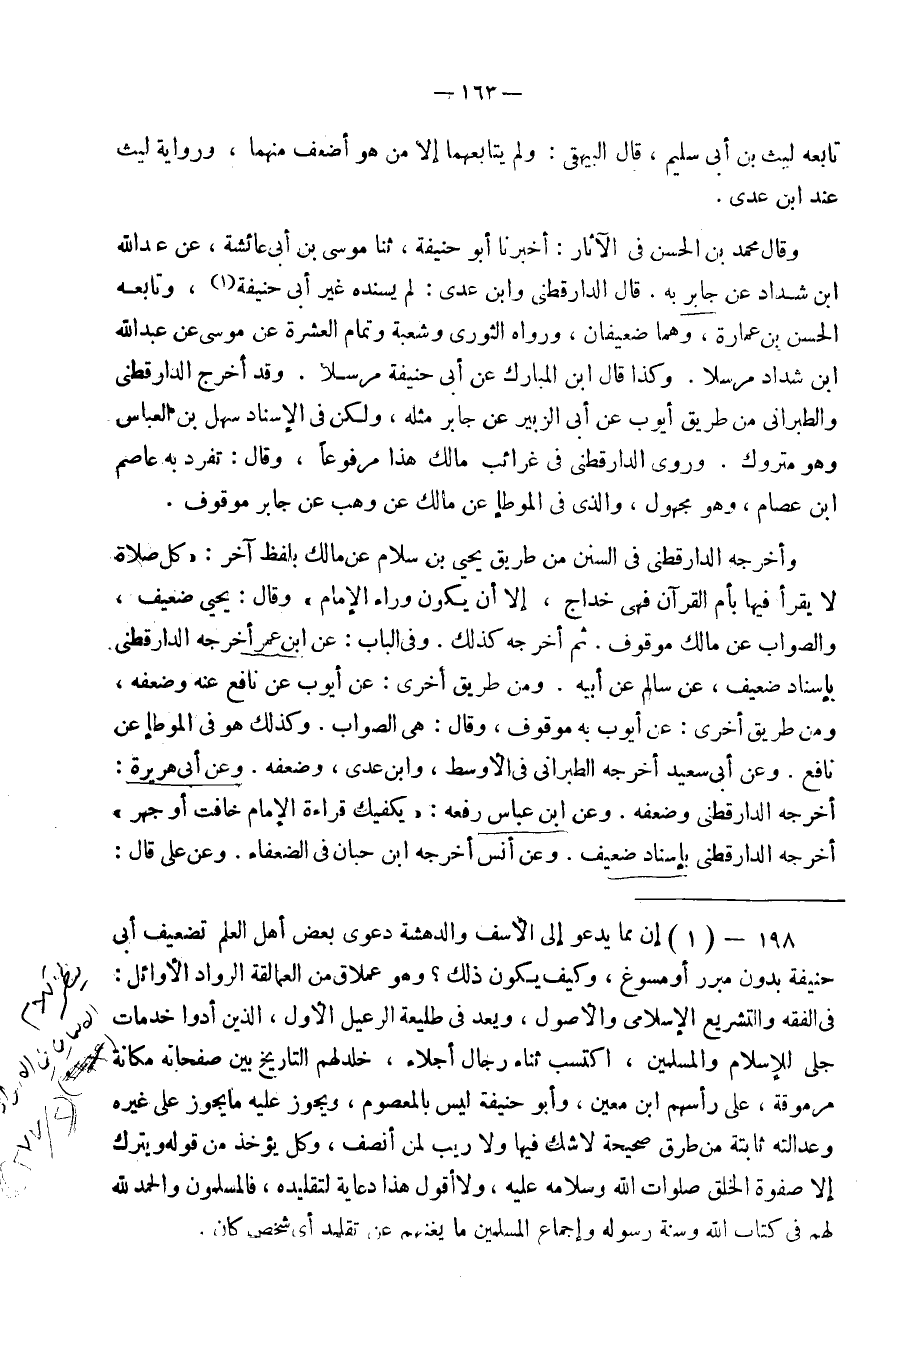 — ١٦٣ —
تابعه ليث بن أبى سليم ، قال البيهقى : ولم يتابعهما إلا من هو أضعف منهما ، ورواية ليث
عند ابن عدى .
وقال محمد بن الحسن فى الآثار : أخبرنا أبو حنيفة ، ثنا موسى بن أبى عائشة ، عن عبدالله
ابن شداد عن جابر به . قال الدارقطنى وابن عدى : لم يسنده غير أبى حنيفة(١) ، وتابعه
الحسن بن عمارة ، وهما ضعيفان ، ورواه الثورى وشعبة وتمام العشرة عن موسى عن عبدالله
ابن شداد مرسلا . وكذا قال ابن المبارك عن أبى حنيفة مرسلا . وقد أخرج الدارقطنى
والطبرانى من طريق أيوب عن أبى الزبير عن جابر مثله ، ولكن فى الإسناد سهل بن العباس
وهو متروك . وروى الدارقطنى فى غرائب مالك هذا مرفوعاً ، وقال : تفرد به عاصم
ابن عصام ، وهو مجهول ، والذى فى الموطإ عن مالك عن وهب عن جابر موقوف .
وأخرجه الدارقطنى فى السنن من طريق يحيى بن سلام عن مالك بلفظ آخر : « كل صلاة
لا يقرأ فيها بأم القرآن فهى خداج ، إلا أن يكون وراء الإمام » وقال : يحيى ضعيف ،
والصواب عن مالك موقوف . ثم أخرجه كذلك . وفى الباب : عن ابن عمر أخرجه الدارقطنى
بإسناد ضعيف ، عن سالم عن أبيه . ومن طريق أخرى : عن أيوب عن نافع عنه وضعفه ،
ومن طريق أخرى : عن أيوب به موقوف ، وقال : هى الصواب . وكذلك هو فى الموطإ عن
نافع . وعن أبى سعيد أخرجه الطبرانى فى الأوسط ، وابن عدى ، وضعفه . وعن أبى هريرة :
أخرجه الدارقطنى وضعفه . وعن ابن عباس رفعه : « يكفيك قراءة الإمام خافت أو جهر »
أخرجه الدارقطنى بإسناد ضعيف . وعن أنس أخرجه ابن حبان فى الضعفاء . وعن على قال :
١٩٨ — (١) إن مما يدعو إلى الأسف والدهشة دعوى بعض أهل العلم تضعيف أبى
حنيفة بدون مبرر أو مسوغ ، وكيف يكون ذلك ؟ وهو عملاق من العمالقة الرواد الأوائل :
فى الفقه والتشريع الإسلامى والأصول ، ويعد فى طليعة الرعيل الأول ، الذين أدوا خدمات
جلى للإسلام والمسلمين ، اكتسب ثناء رجال أجلاء ، خلدلهم التاريخ بين صفحاته مكانة
مرموقة ، على رأسهم ابن معين ، وأبو حنيفة ليس بالمعصوم ، ويجوز عليه مايجوز على غيره
وعدالته ثابتة من طرق صحيحة لاشك فيها ولا ريب لمن أنصف ، وكل يؤخذ من قوله ويترك
إلا صفوة الخلق صلوات الله وسلامه عليه ، ولاأقول هذا دعاية لتقليده ، فالمسلمون والحمد لله
لهم فى كتاب الله وسنة رسوله وإجماع المسلمين ما يغنيهم عن تقليد أى شخص كان .